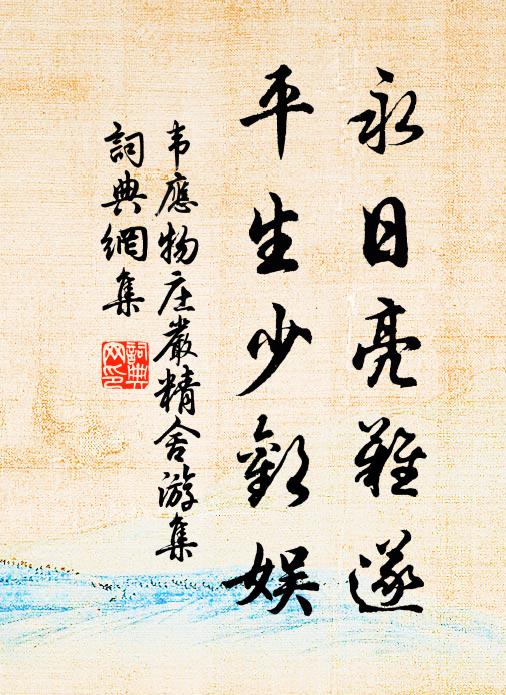 永日亮難遂
平生少歡娱
韦應物庄嚴精舍游集
詞典網集
詞典網印